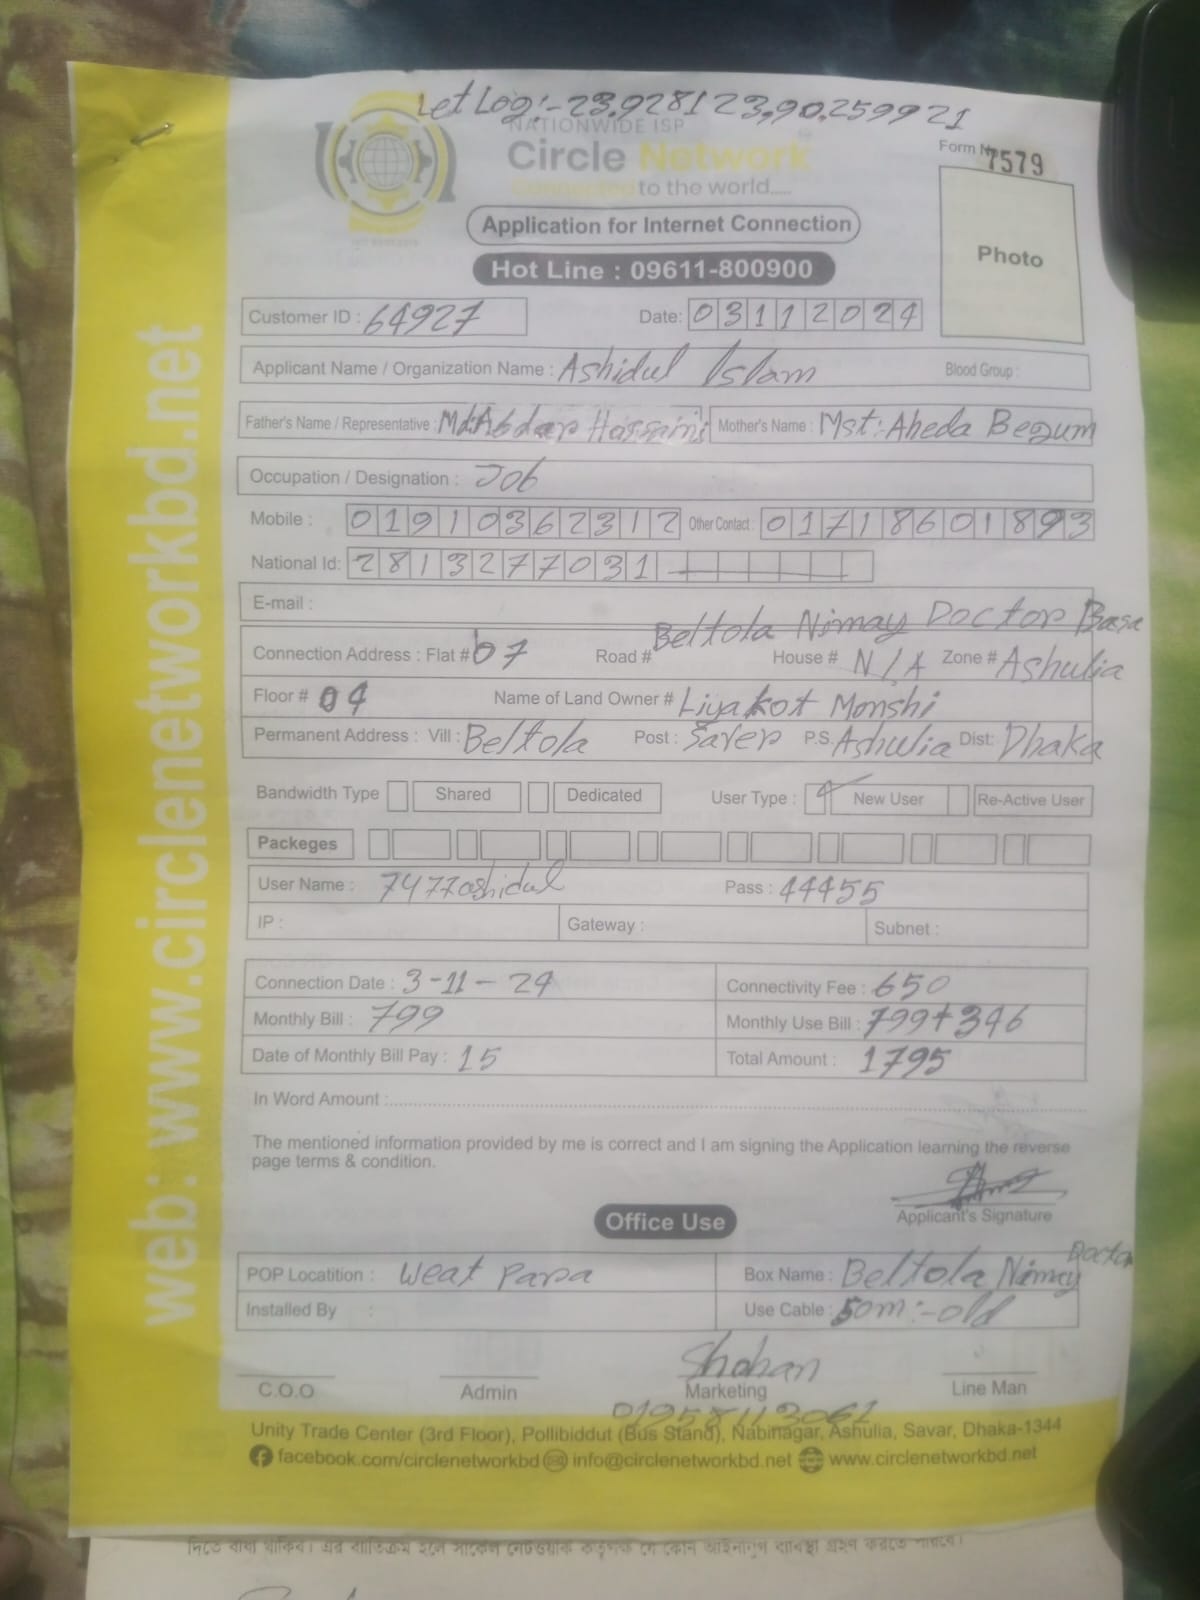 Let Log:- 23.928123,90.259921
NATIONWIDE ISP
Circle Network
Connected to the world.....
Form No
7579
Photo
Application for Internet Connection
Hot Line : 09611-800900
Customer ID : 64927
Date: 03112024
Applicant Name / Organization Name : Ashidul Islam Blood Group :
Father's Name / Representative : Md: Abdar Hossain Mother's Name : Mst: Aheda Begum
Occupation / Designation : Job
Mobile : 01910362312 Other Contact : 01718601893
National Id: 2813277031
E-mail :
Beltola Nimay Doctor Basa
Connection Address : Flat # 07 Road # House # N/A Zone # Ashulia
Floor # 04 Name of Land Owner # Liyakot Monshi
Permanent Address : Vill : Beltola Post : Saver P.S. Ashulia Dist: Dhaka
Bandwidth Type Shared Dedicated User Type : New User Re-Active User
Packeges
User Name : 7477ashidul Pass : 44455
IP : Gateway : Subnet :
Connection Date : 3-11-24 Connectivity Fee : 650
Monthly Bill : 799 Monthly Use Bill : 799+346
Date of Monthly Bill Pay : 15 Total Amount : 1795
In Word Amount :
The mentioned information provided by me is correct and I am signing the Application learning the reverse
page terms & condition.
Applicant's Signature
Office Use
POP Locatition : Weat Para Box Name : Beltola Nimay Doctor
Installed By : Use Cable : 50m:-old
Shohan
C.O.O Admin Marketing Line Man
01958113061
Unity Trade Center (3rd Floor), Pollibiddut (Bus Stand), Nabinagar, Ashulia, Savar, Dhaka-1344
facebook.com/circlenetworkbd info@circlenetworkbd.net www.circlenetworkbd.net
web: www.circlenetworkbd.net
দিতে বাধ্য থাকিব। এর ব্যতিক্রম হলে সার্কেল নেটওয়ার্ক কর্তৃপক্ষ যে কোন আইনানুগ ব্যবস্থা গ্রহণ করতে পারবে।